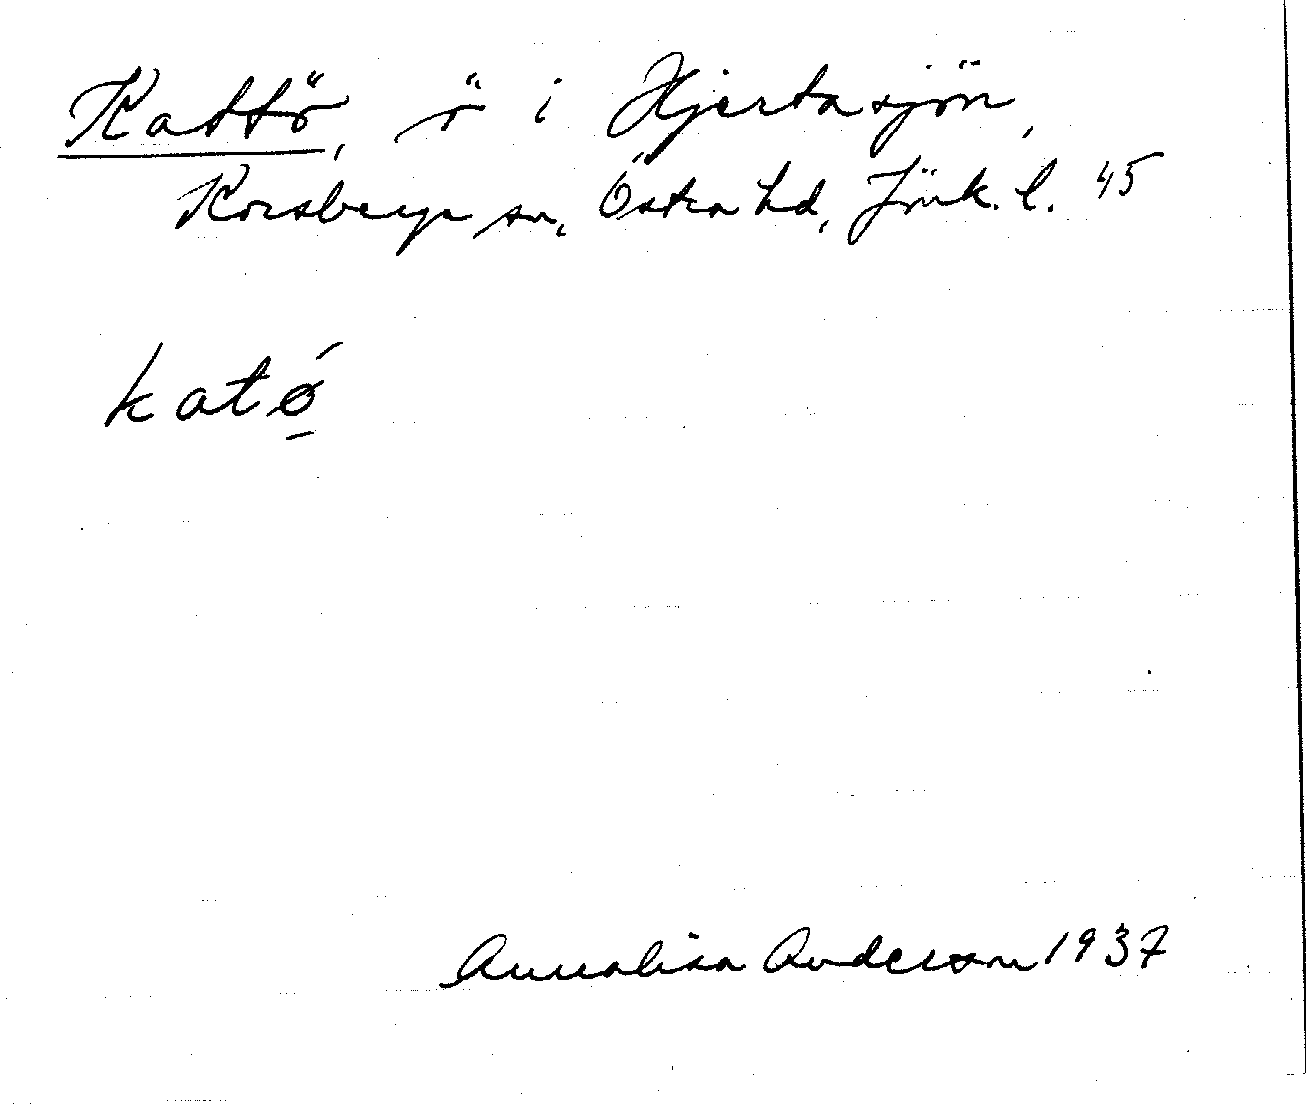 Kattö, ö i Hjertasjön,
Korsberga sn, Östra hd, Jönk. l. 45
katǿ̱
Annalisa Anderson 1937